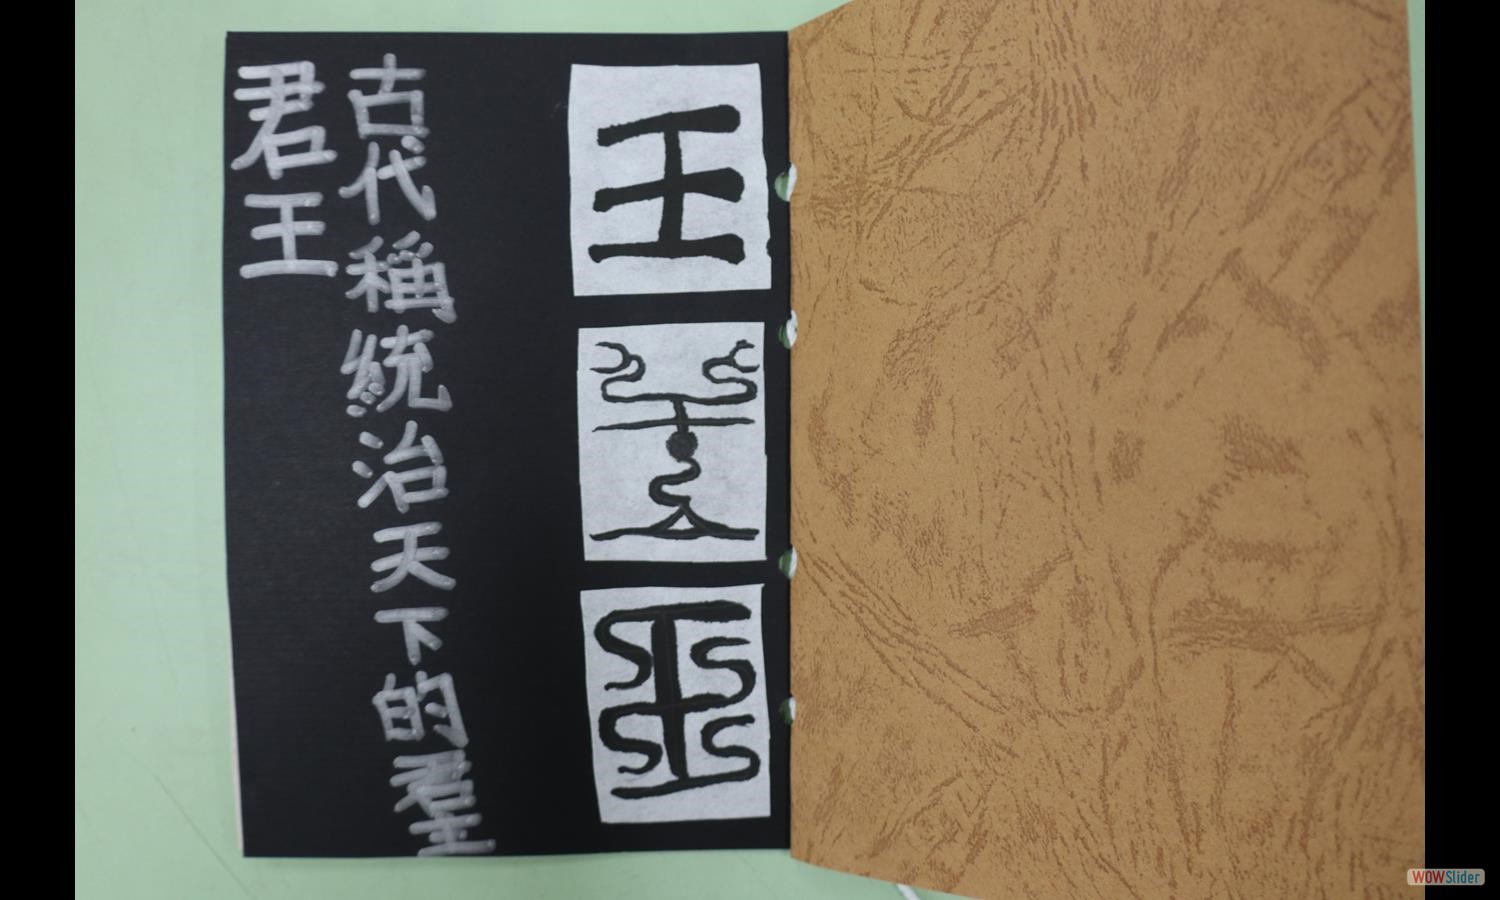 王
古代稱統治天下的
君王
WOWSlider